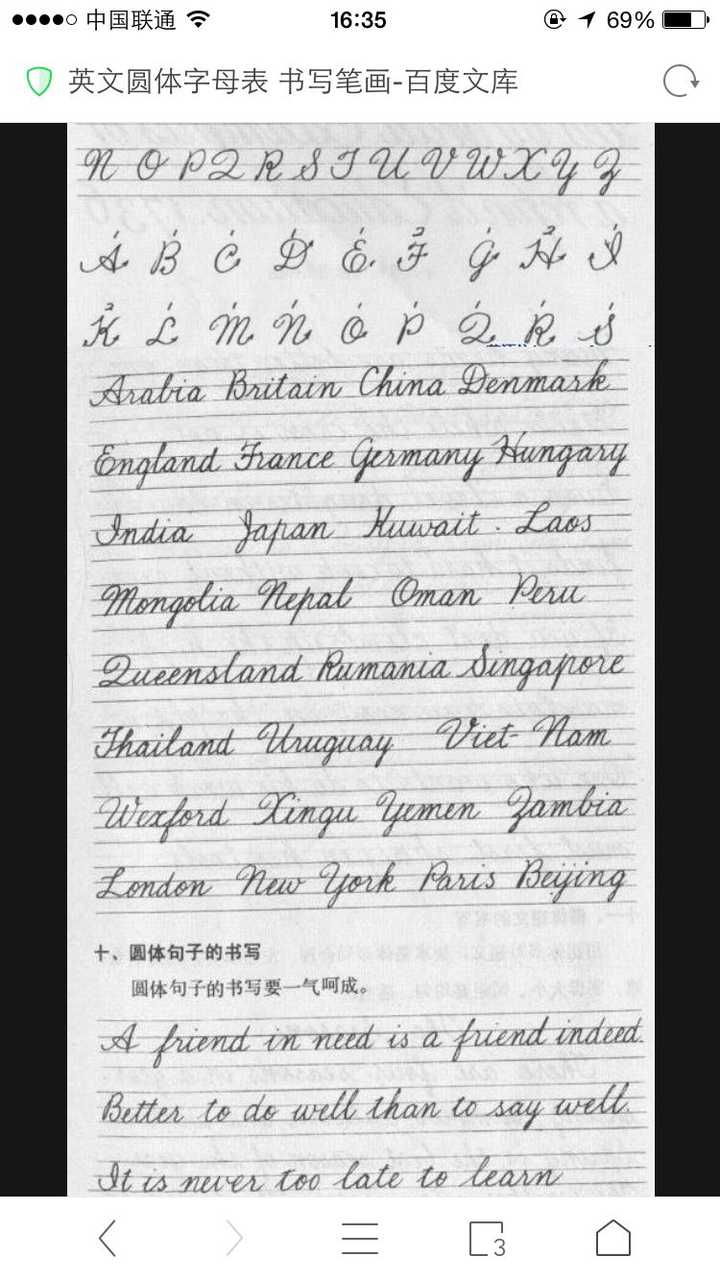 中国联通 16:35 69%
英文圆体字母表 书写笔画-百度文库
N O P Q R S T U V W X Y Z
A B C D E F G H I
K L M N O P Q R S
Arabia Britain China Denmark
England France Germany Hungary
India Japan Kuwait. Laos
Mongolia Nepal Oman Peru
Queensland Rumania Singapore
Thailand Uruguay Viet-Nam
Wexford Xingu Yemen Zambia
London New York Paris Beijing
十、圆体句子的书写
圆体句子的书写要一气呵成。
A friend in need is a friend indeed.
Better to do well than to say well.
It is never too late to learn
3